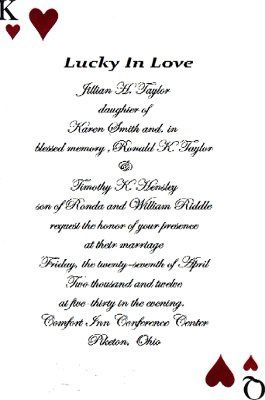 K
Lucky In Love
Jillian H. Taylor
daughter of
Karen Smith and, in
blessed memory, Ronald K. Taylor
&
Timothy K. Hensley
son of Ronda and William Riddle
request the honor of your presence
at their marriage
Friday, the twenty-seventh of April
Two thousand and twelve
at five-thirty in the evening.
Comfort Inn Conference Center
Piketon, Ohio
Q